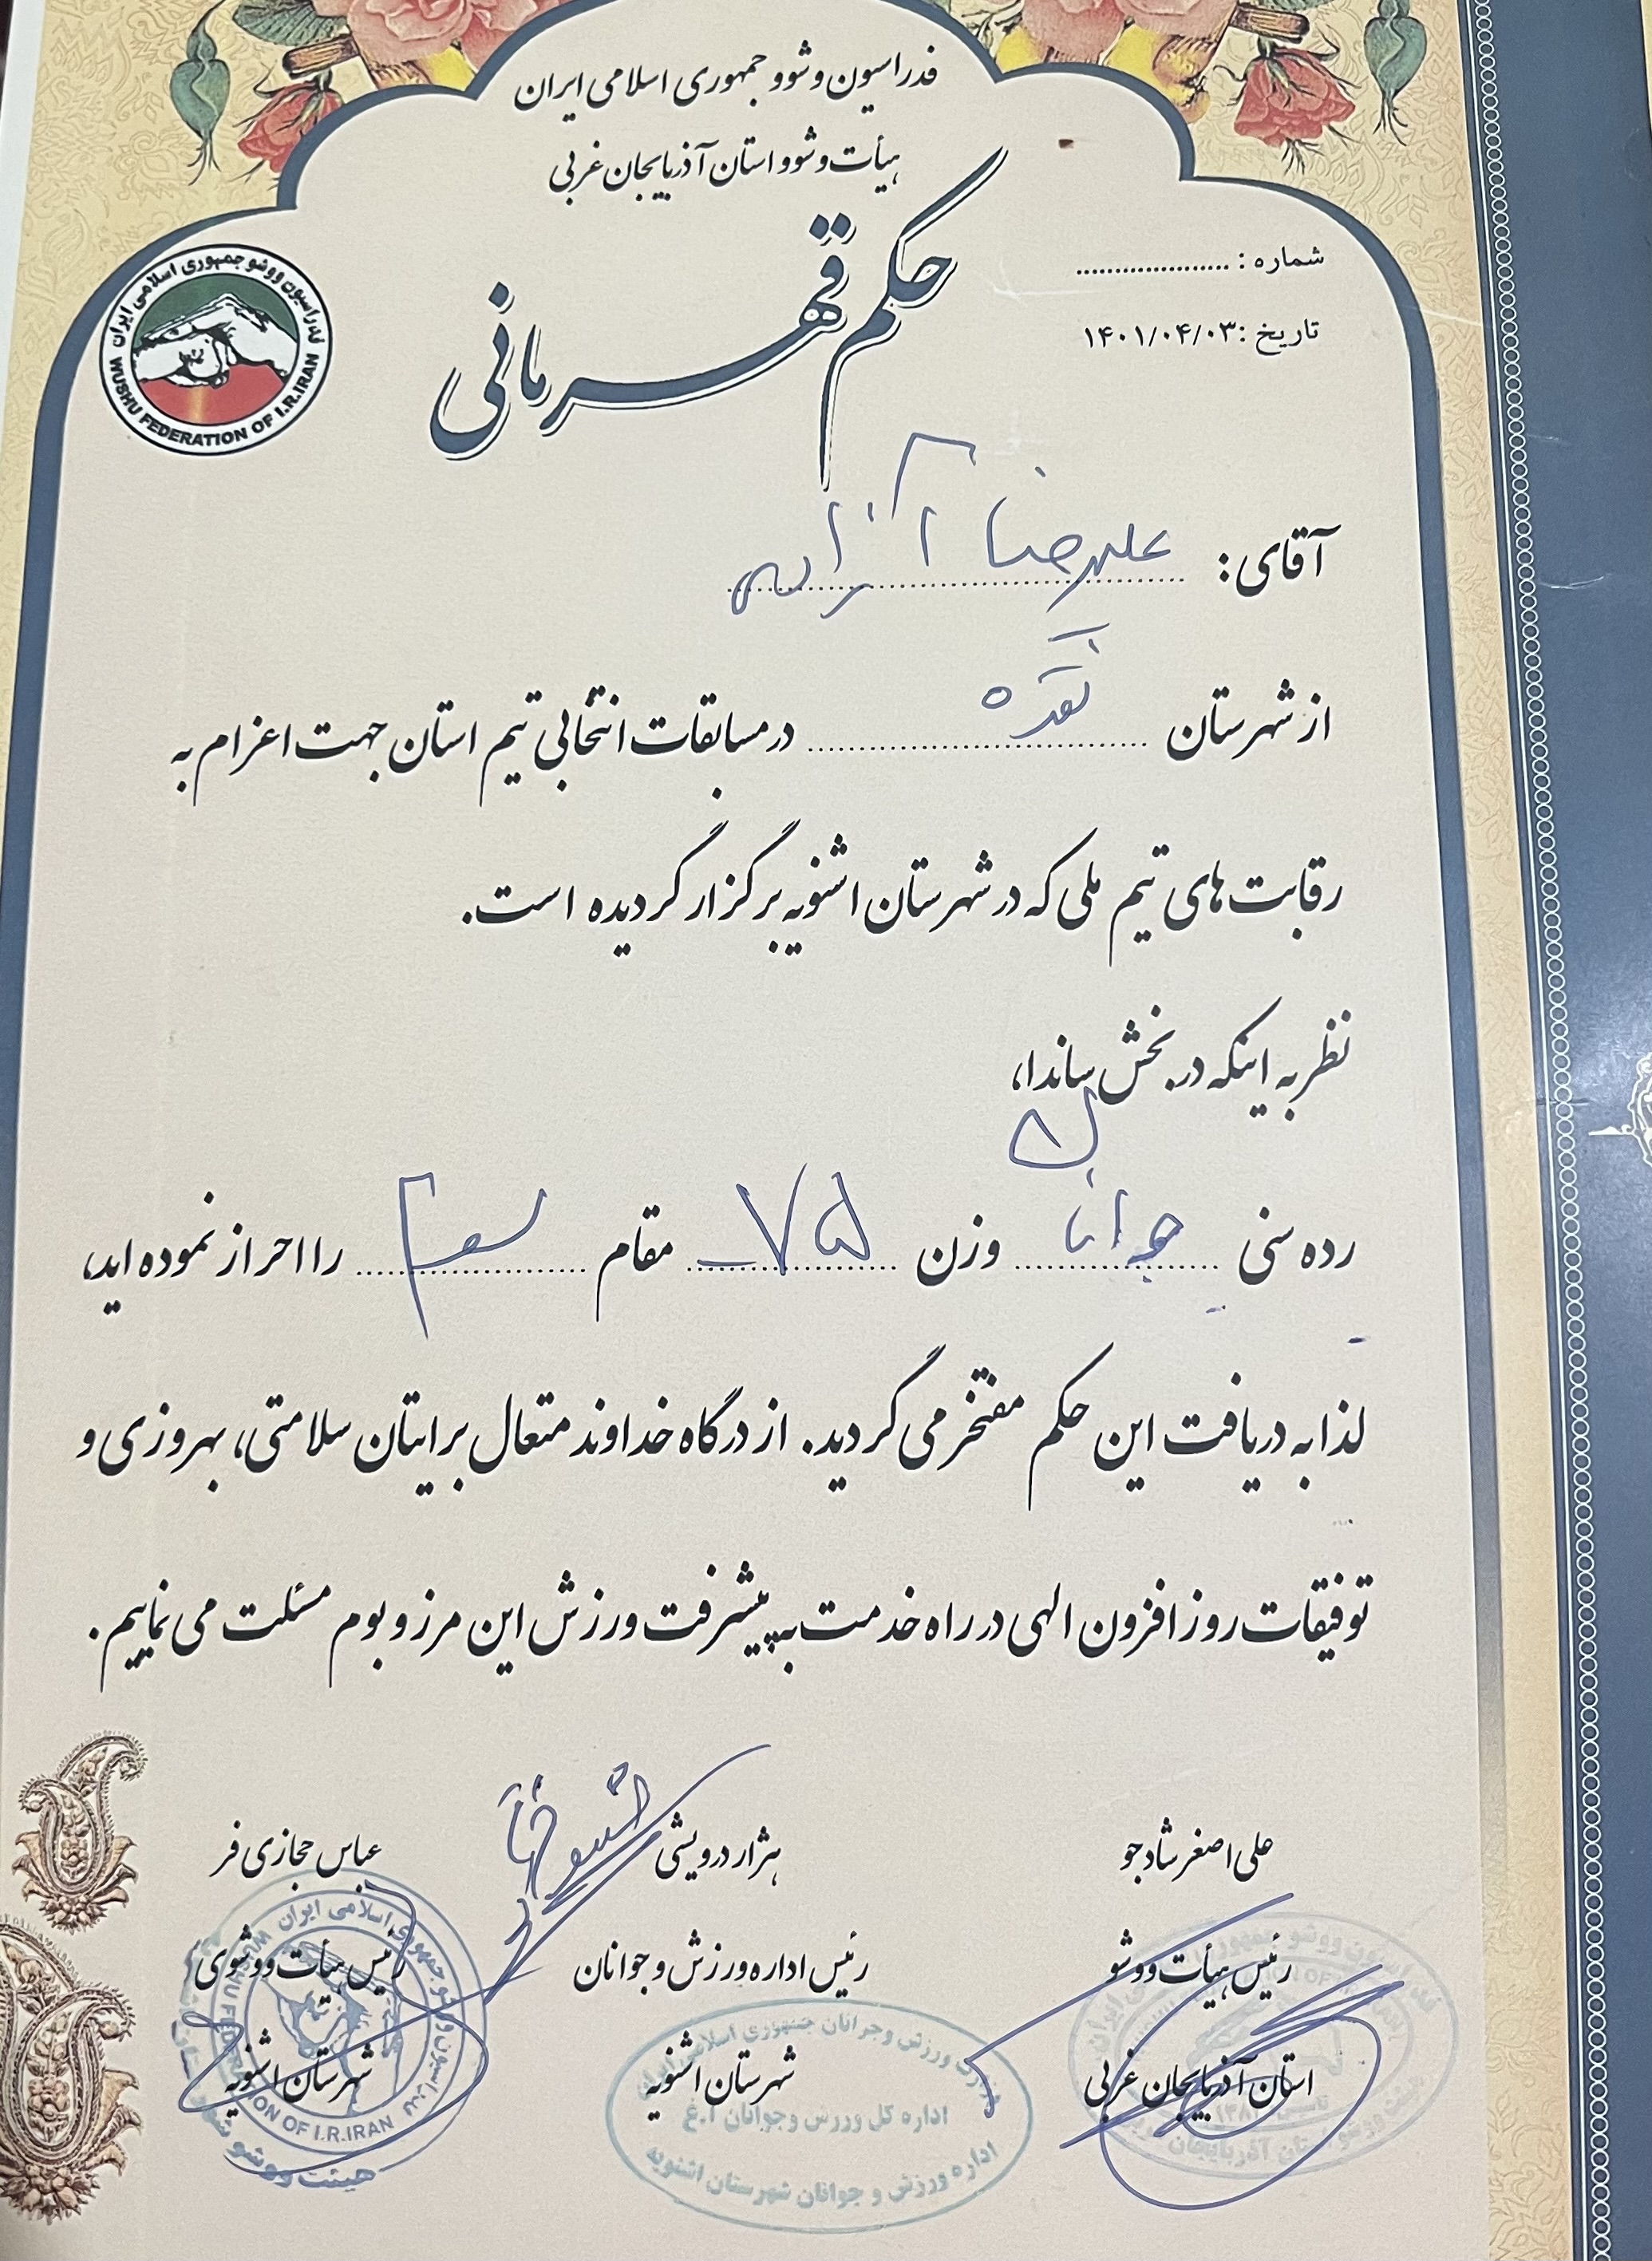 فدراسیون ووشو جمهوری اسلامی ایران
هیأت ووشو استان آذربایجان غربی
حکم قهرمانی
شماره : ....................
تاریخ : ۱۴۰۱/۰۴/۰۳
فدراسیون ووشو جمهوری اسلامی ایران
WUSHU FEDERATION OF I.R.IRAN
آقای: علیرضا
از شهرستان نقده در مسابقات انتخابی تیم استان جهت اعزام به
رقابت های تیم ملی که در شهرستان اشنویه برگزار گردیده است.
نظر به اینکه در بخش ساندا،
رده سنی جوانان وزن ۷۵- مقام سوم را احراز نموده اید،
لذا به دریافت این حکم مفتخر می گردید. از درگاه خداوند متعال برایتان سلامتی، بهروزی و
توفیقات روز افزون الهی در راه خدمت به پیشرفت ورزش این مرز و بوم مسئلت می نماییم.
علی اصغر شادجو
رئیس هیأت ووشو
استان آذربایجان غربی
هژار درویشی
رئیس اداره ورزش و جوانان
شهرستان اشنویه
عباس حجازی فر
رئیس هیأت ووشوی
شهرستان اشنویه
وزارت ورزش و جوانان جمهوری اسلامی ایران
اداره کل ورزش و جوانان آ.غ
اداره ورزش و جوانان شهرستان اشنویه